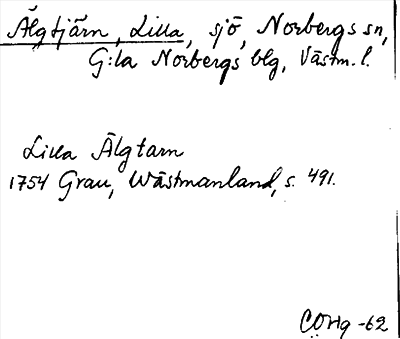 Älgtjärn, Lilla, sjö, Norbergs sn,
G:la Norbergs blg, Västm. l.
Lilla Älgtarn
1754 Grau, Wästmanland, s. 491.
CÖHg -62